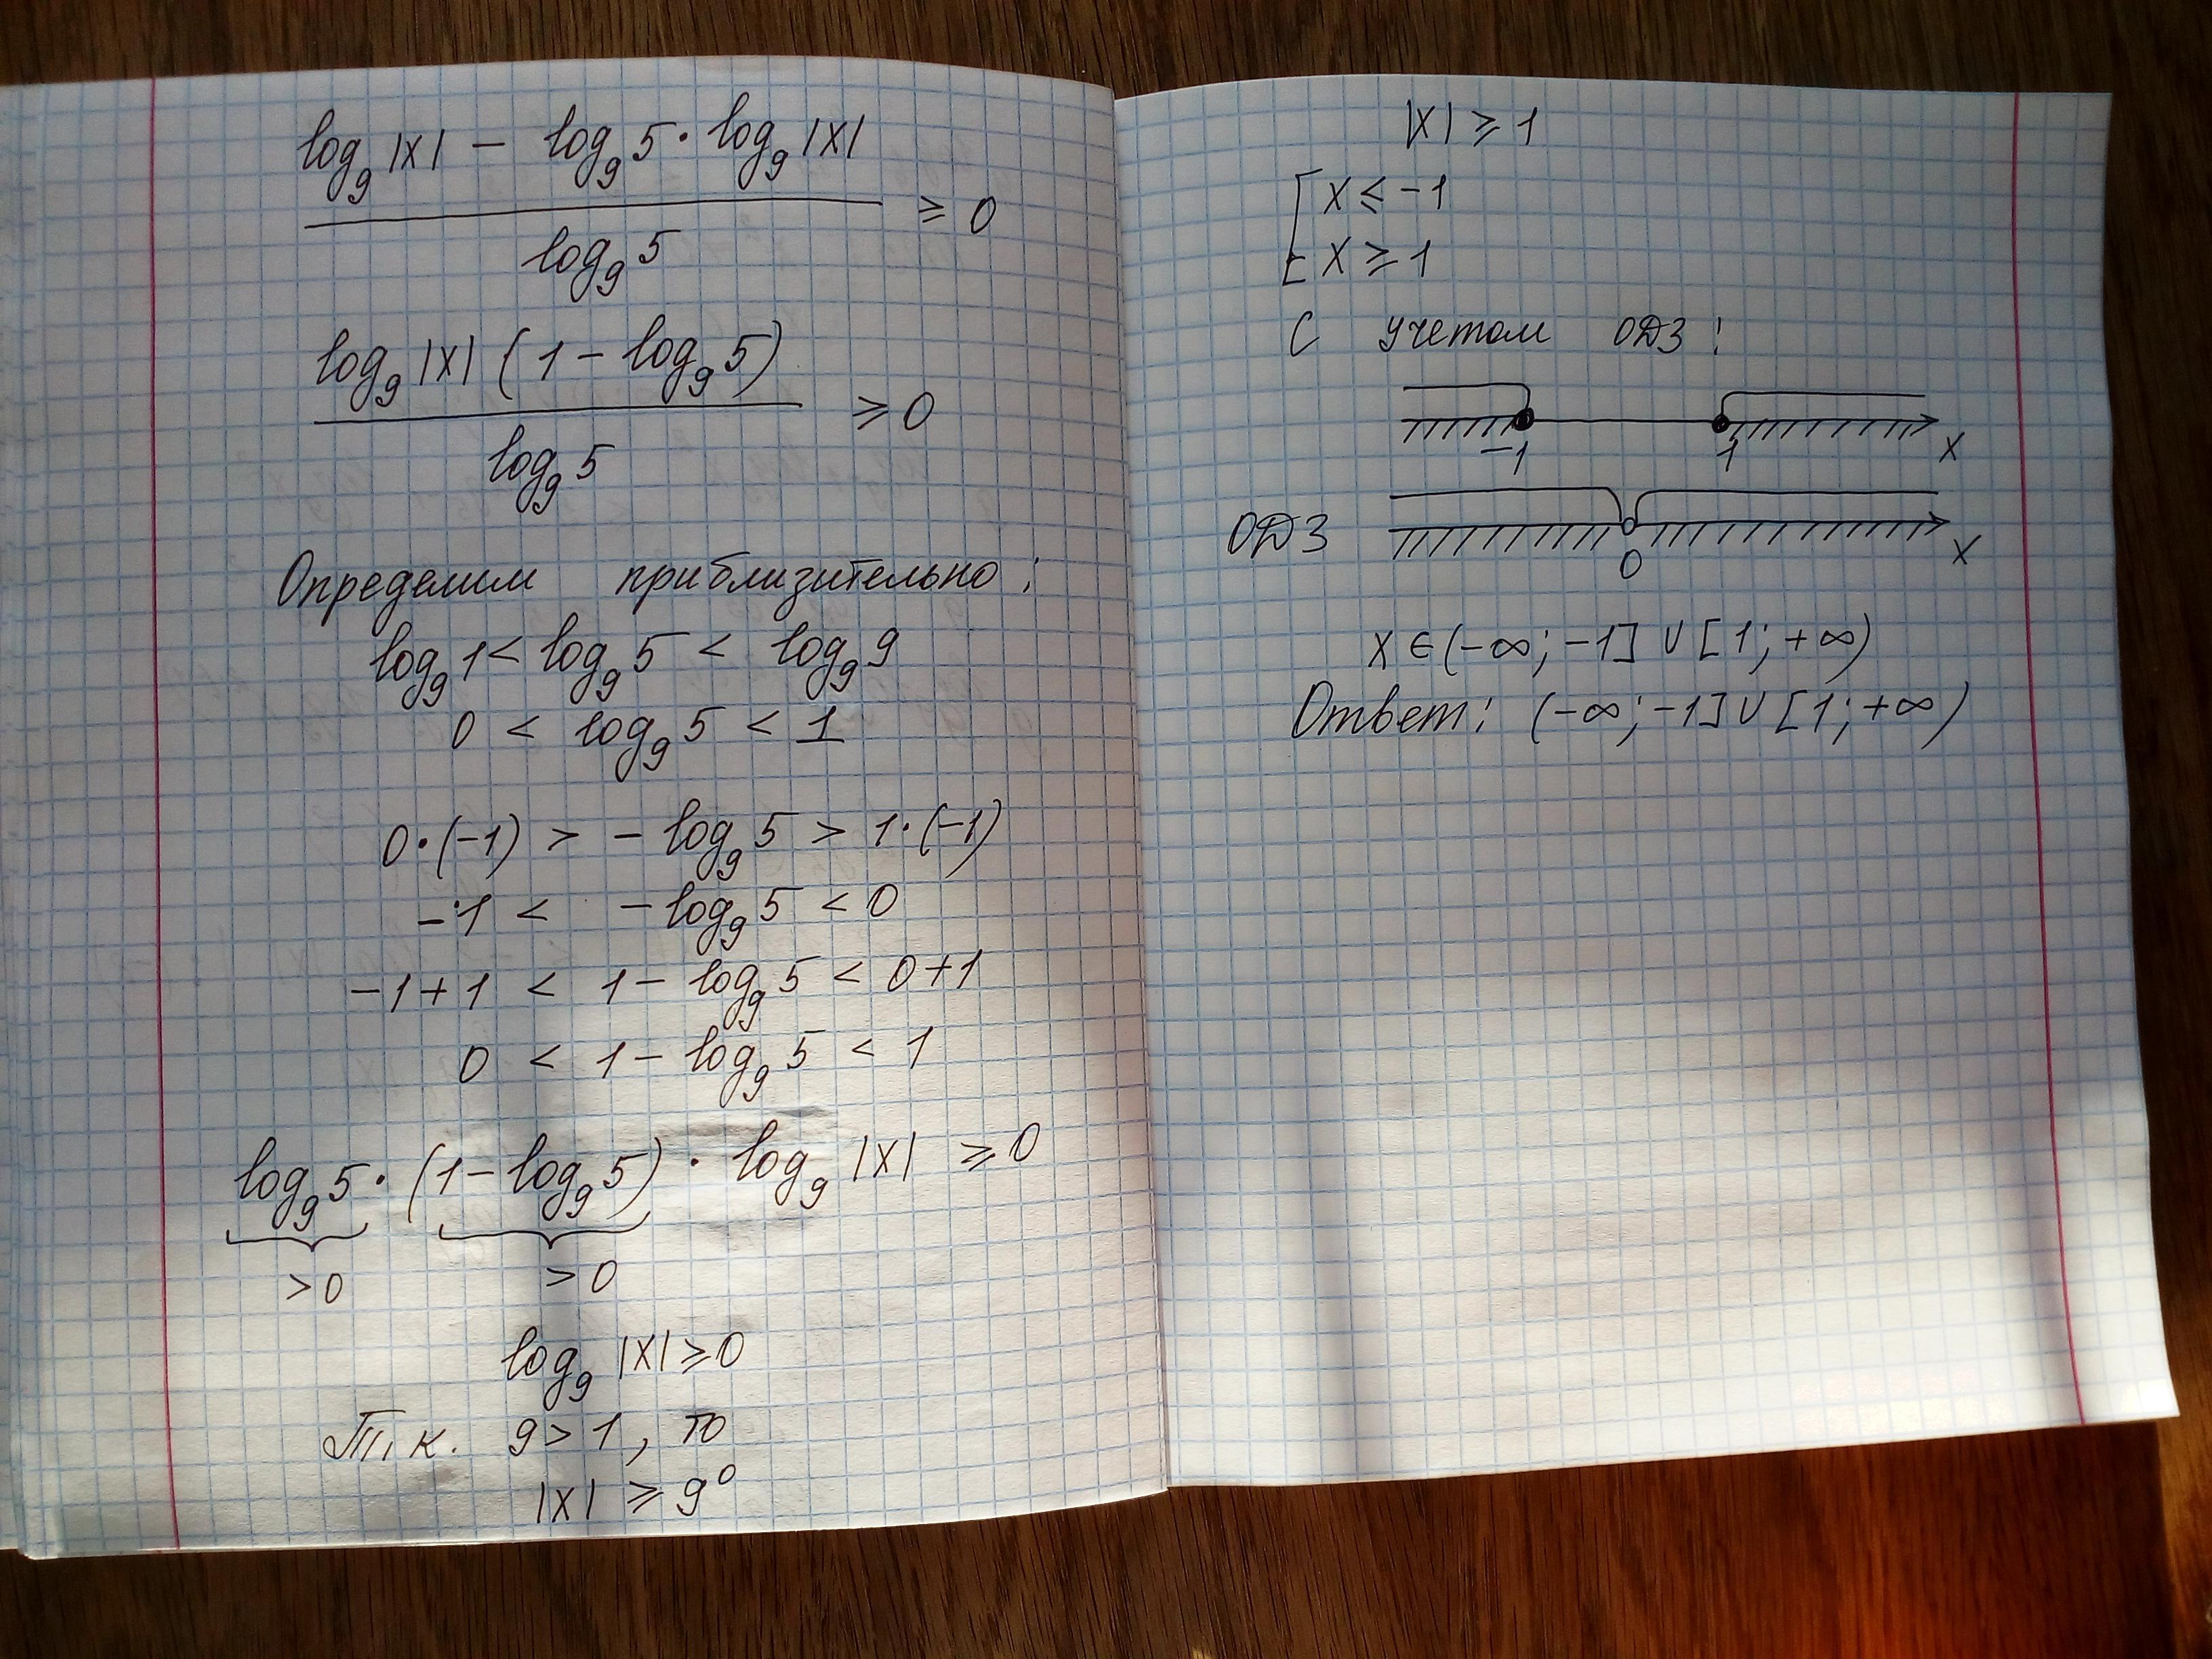 log₉|x| − log₉5 · log₉|x|
───────────── ≥ 0
log₉5
log₉|x| (1 − log₉5)
───────────── ≥ 0
log₉5
Определим приблизительно:
log₉1 < log₉5 < log₉9
0 < log₉5 < 1
0·(−1) > − log₉5 > 1·(−1)
−1 < − log₉5 < 0
−1+1 < 1 − log₉5 < 0+1
0 < 1 − log₉5 < 1
log₉5 · (1 − log₉5) · log₉|x| ≥ 0
>0 >0
log₉|x| ≥ 0
Т.к. 9 > 1, то
|x| ≥ 9⁰
|x| ≥ 1
[ x ≤ −1
[ x ≥ 1
С учетом ОДЗ:
−1 1 x
ОДЗ
0 x
x ∈ (−∞; −1] ∪ [1; +∞)
Ответ: (−∞; −1] ∪ [1; +∞)